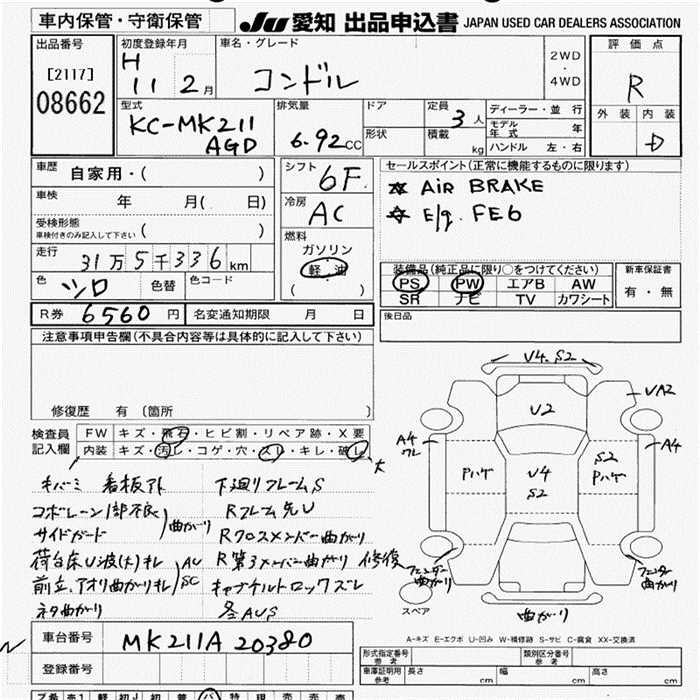 車内保管・守衛保管
JU 愛知 出品申込書 JAPAN USED CAR DEALERS ASSOCIATION
出品番号
[2117]
08662
初度登録年月
H
11 2月
車名・グレード
コンドル
2WD
・
4WD
評価点
R
外装 内装
D
型式
KC-MK211
AGD
排気量
6.92CC
ドア
形状
定員
3人
積載
kg
ディーラー・並行
モデル年式 年
ハンドル 左・右
車歴
自家用・( )
車検
年 月( 日)
受検形態
車検付きのみ記入して下さい ( )
走行
31万5千336km
色
シロ
色替
色コード
シフト
6F
冷房
AC
燃料
ガソリン
軽油
( )
セールスポイント(正常に機能するものに限ります)
☆ AiR BRAKE
☆ E/g. FE6
装備品(純正品に限り○をつけてください)
PS PW エアB AW
SR ナビ TV カワシート
新車保証書
有・無
後日品
R券 6560円
名変通知期限 月 日
注意事項申告欄(不具合内容等は具体的に記入して下さい)
修復歴 有(箇所 )
検査員
記入欄
FW キズ・飛石・ヒビ割・リペア跡・X要
内装 キズ・汚レ・コゲ・穴・スレ・キレ・破レ
大
キバミ 看板アト
コボレーン1部不良
サイドガード
曲がり
荷台床U波(大)キレ
AU
SC
前立、アオリ曲がりキレ
ネタ曲がり
下廻りフレームS
Rフレーム先U
Rクロスメンバー曲がり
R第3メンバー曲がり 修復
キャブチルトロックズレ
各AUS
V4.S2
U2
UA2
A4
ワレ
A4
Pハゲ
V4
S2
S2
Pハゲ
フェンダー
曲がり
フェンダー
曲がり
曲がり
スペア
A-キズ E-エクボ U-凹み W-補修跡 S-サビ C-腐食 XX-交換済
車台番号
MK211A 20380
登録番号
形式指定番号
参考
類別区分番号
参考
車庫証明用
参考
長さ cm 幅 cm 高さ cm